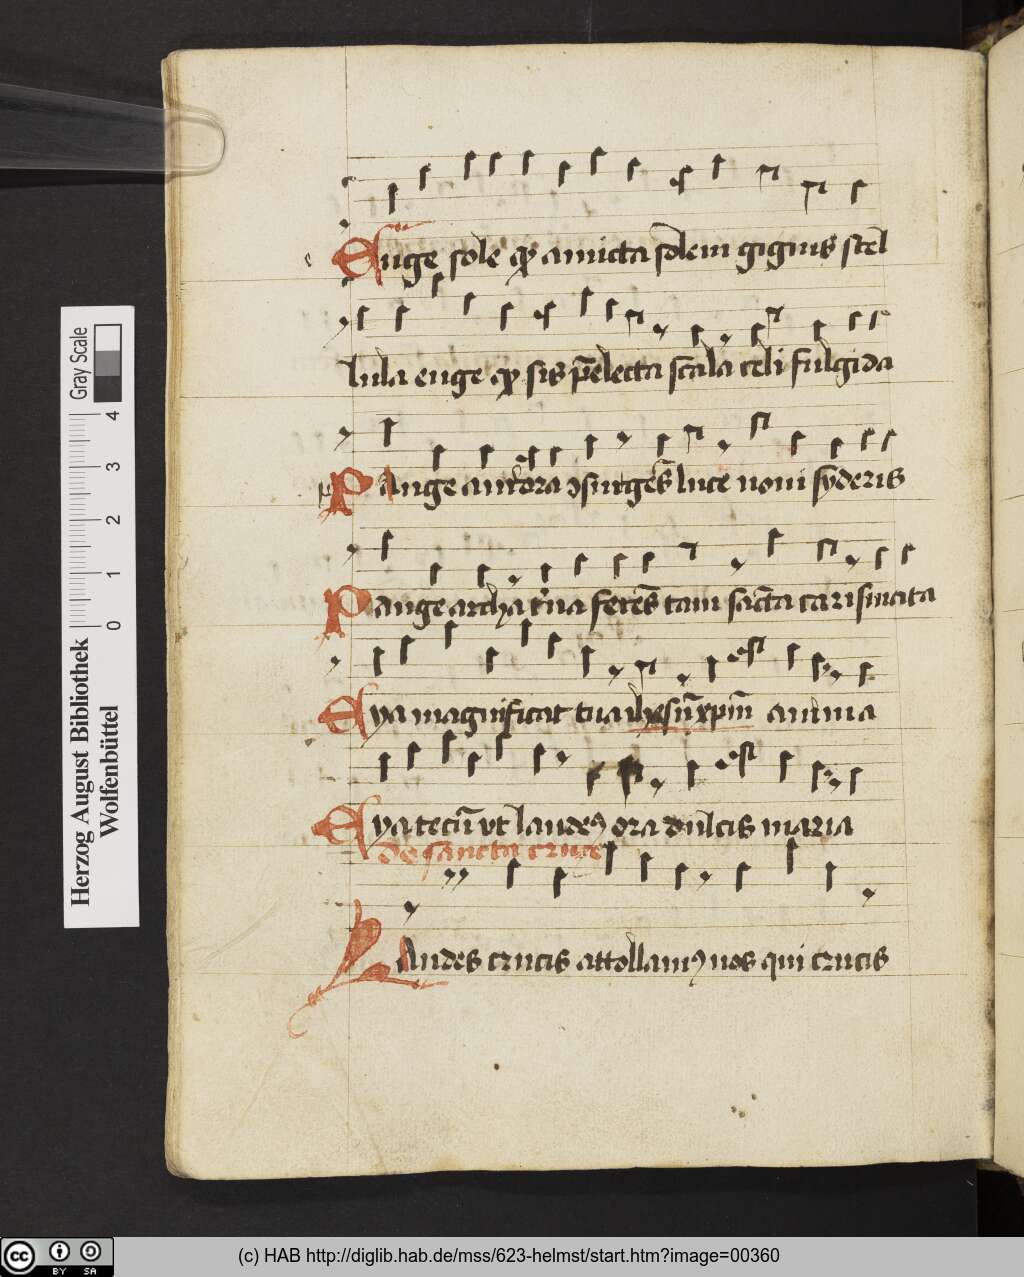 Euge sole qͥ amicta solem gignis stel
lula euge qͥ sis p̄electa scala celi fulgida
Pange aurora ↄsurgēs luce noui syderis
Pange archa t͛na ferēs tam sācta carismata
Eya magnificat tua ihesū xp̄m anima
Eya tecū vt laudeꝰ ora dulcis maria
de sancta cruce
Laudes crucis attollamꝰ nos qui crucis
Gray Scale
0 1 2 3 4
Herzog August Bibliothek
Wolfenbüttel
cc BY SA
(c) HAB http://diglib.hab.de/mss/623-helmst/start.htm?image=00360